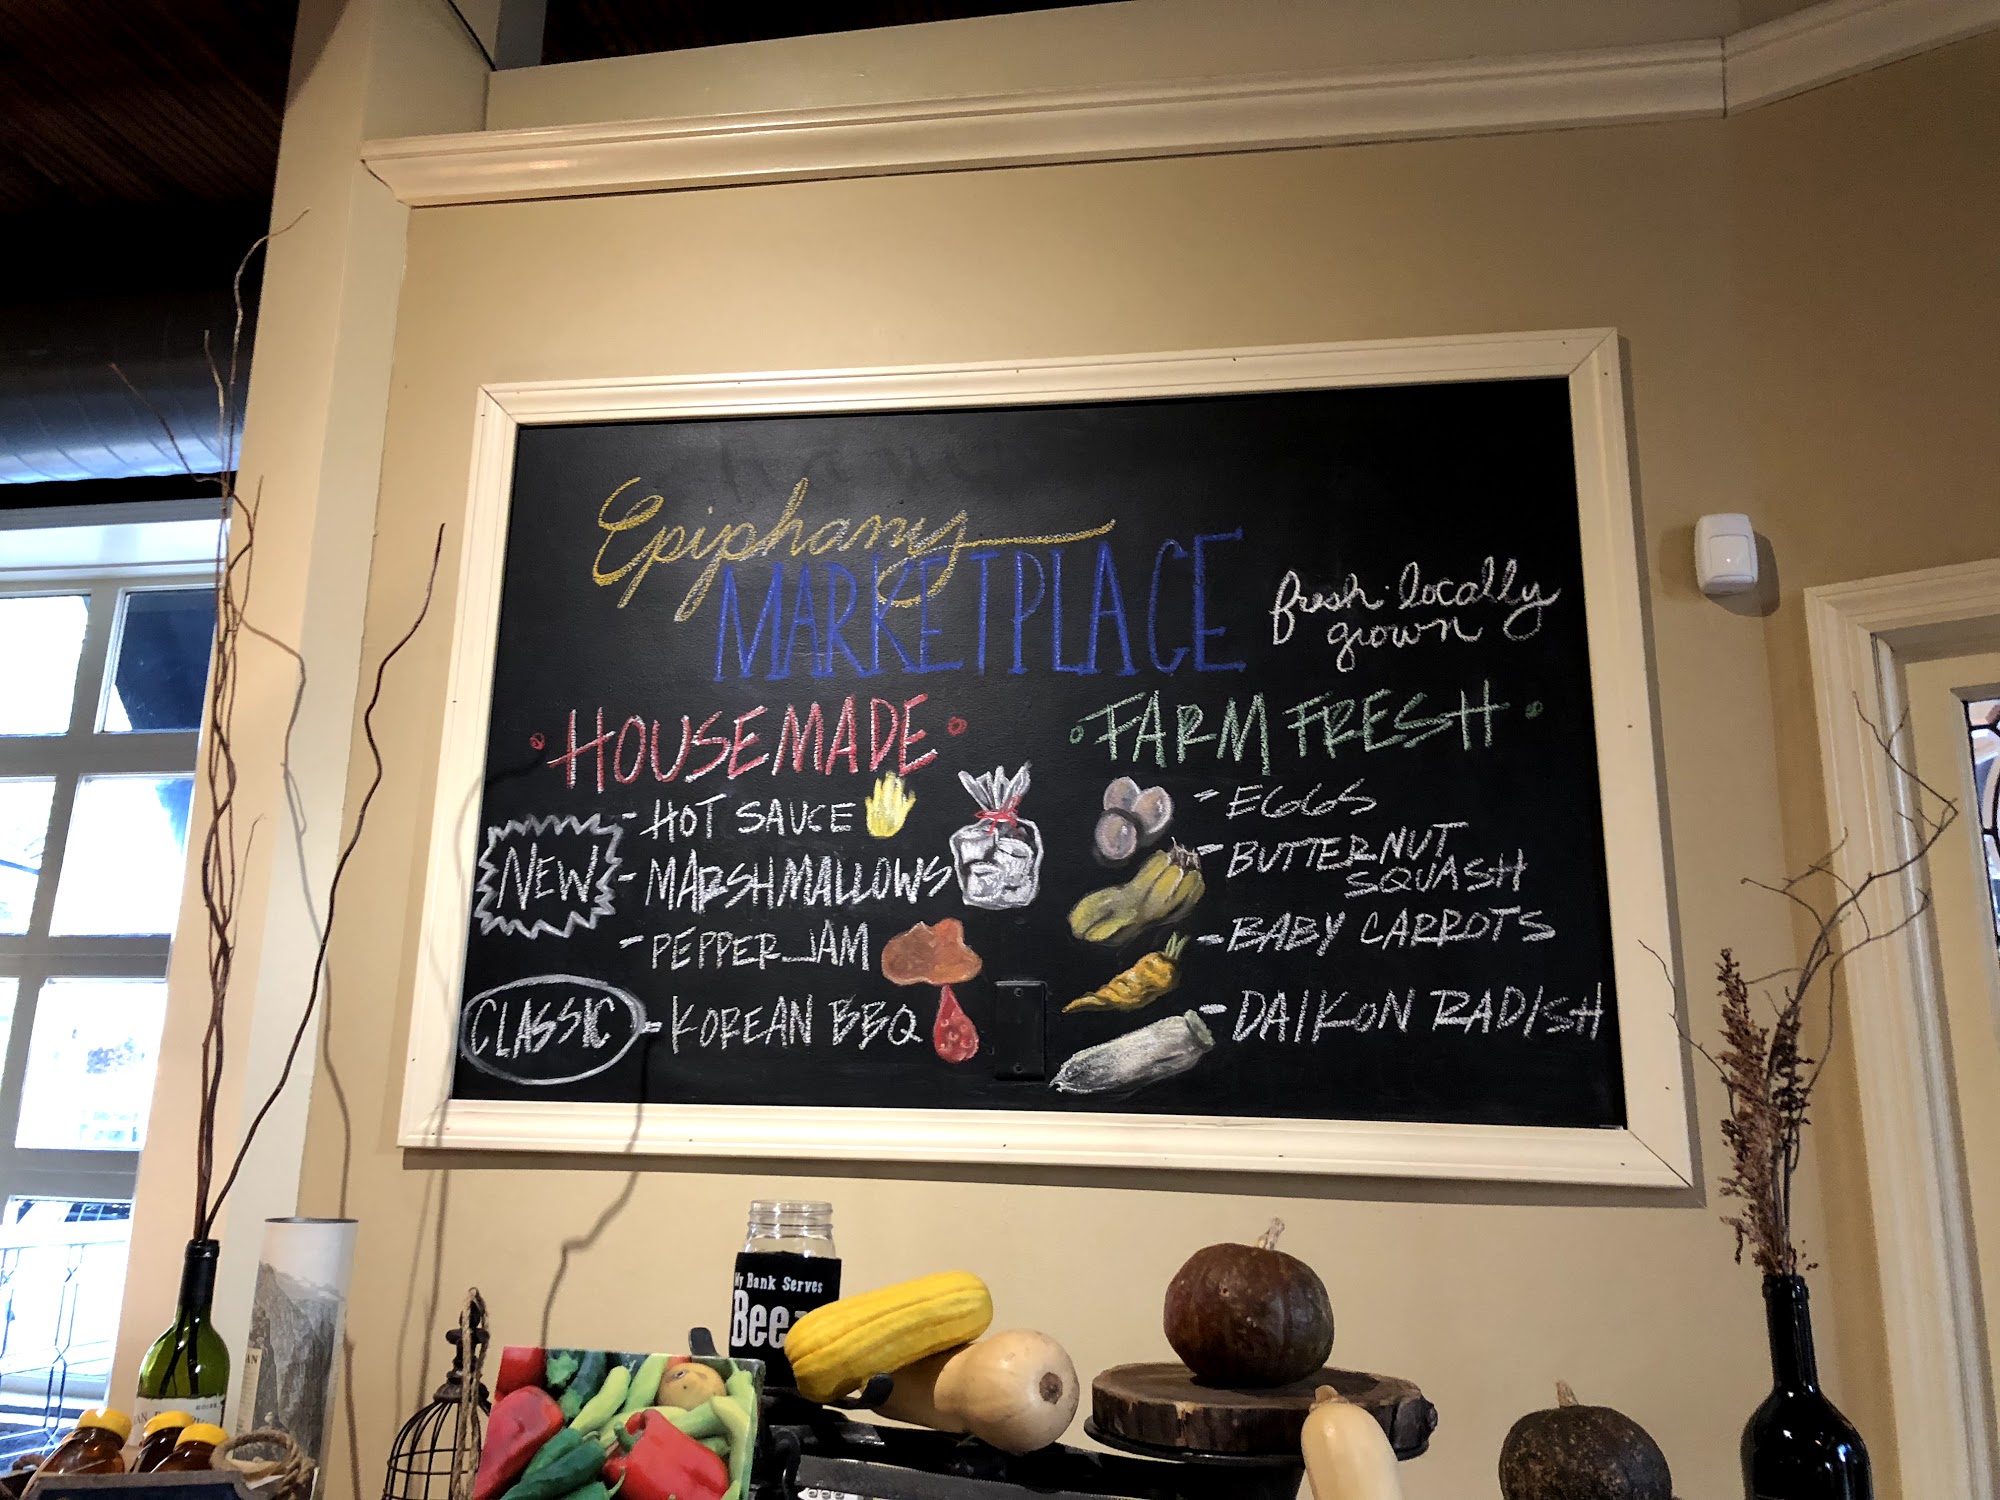 Epiphany
MARKETPLACE
fresh · locally
grown
· HOUSEMADE ·
NEW
- HOT SAUCE
- MARSHMALLOWS
- PEPPER JAM
CLASSIC
- KOREAN BBQ
· FARM FRESH ·
- EGGS
- BUTTERNUT
SQUASH
- BABY CARROTS
- DAIKON RADISH
My Bank Serves